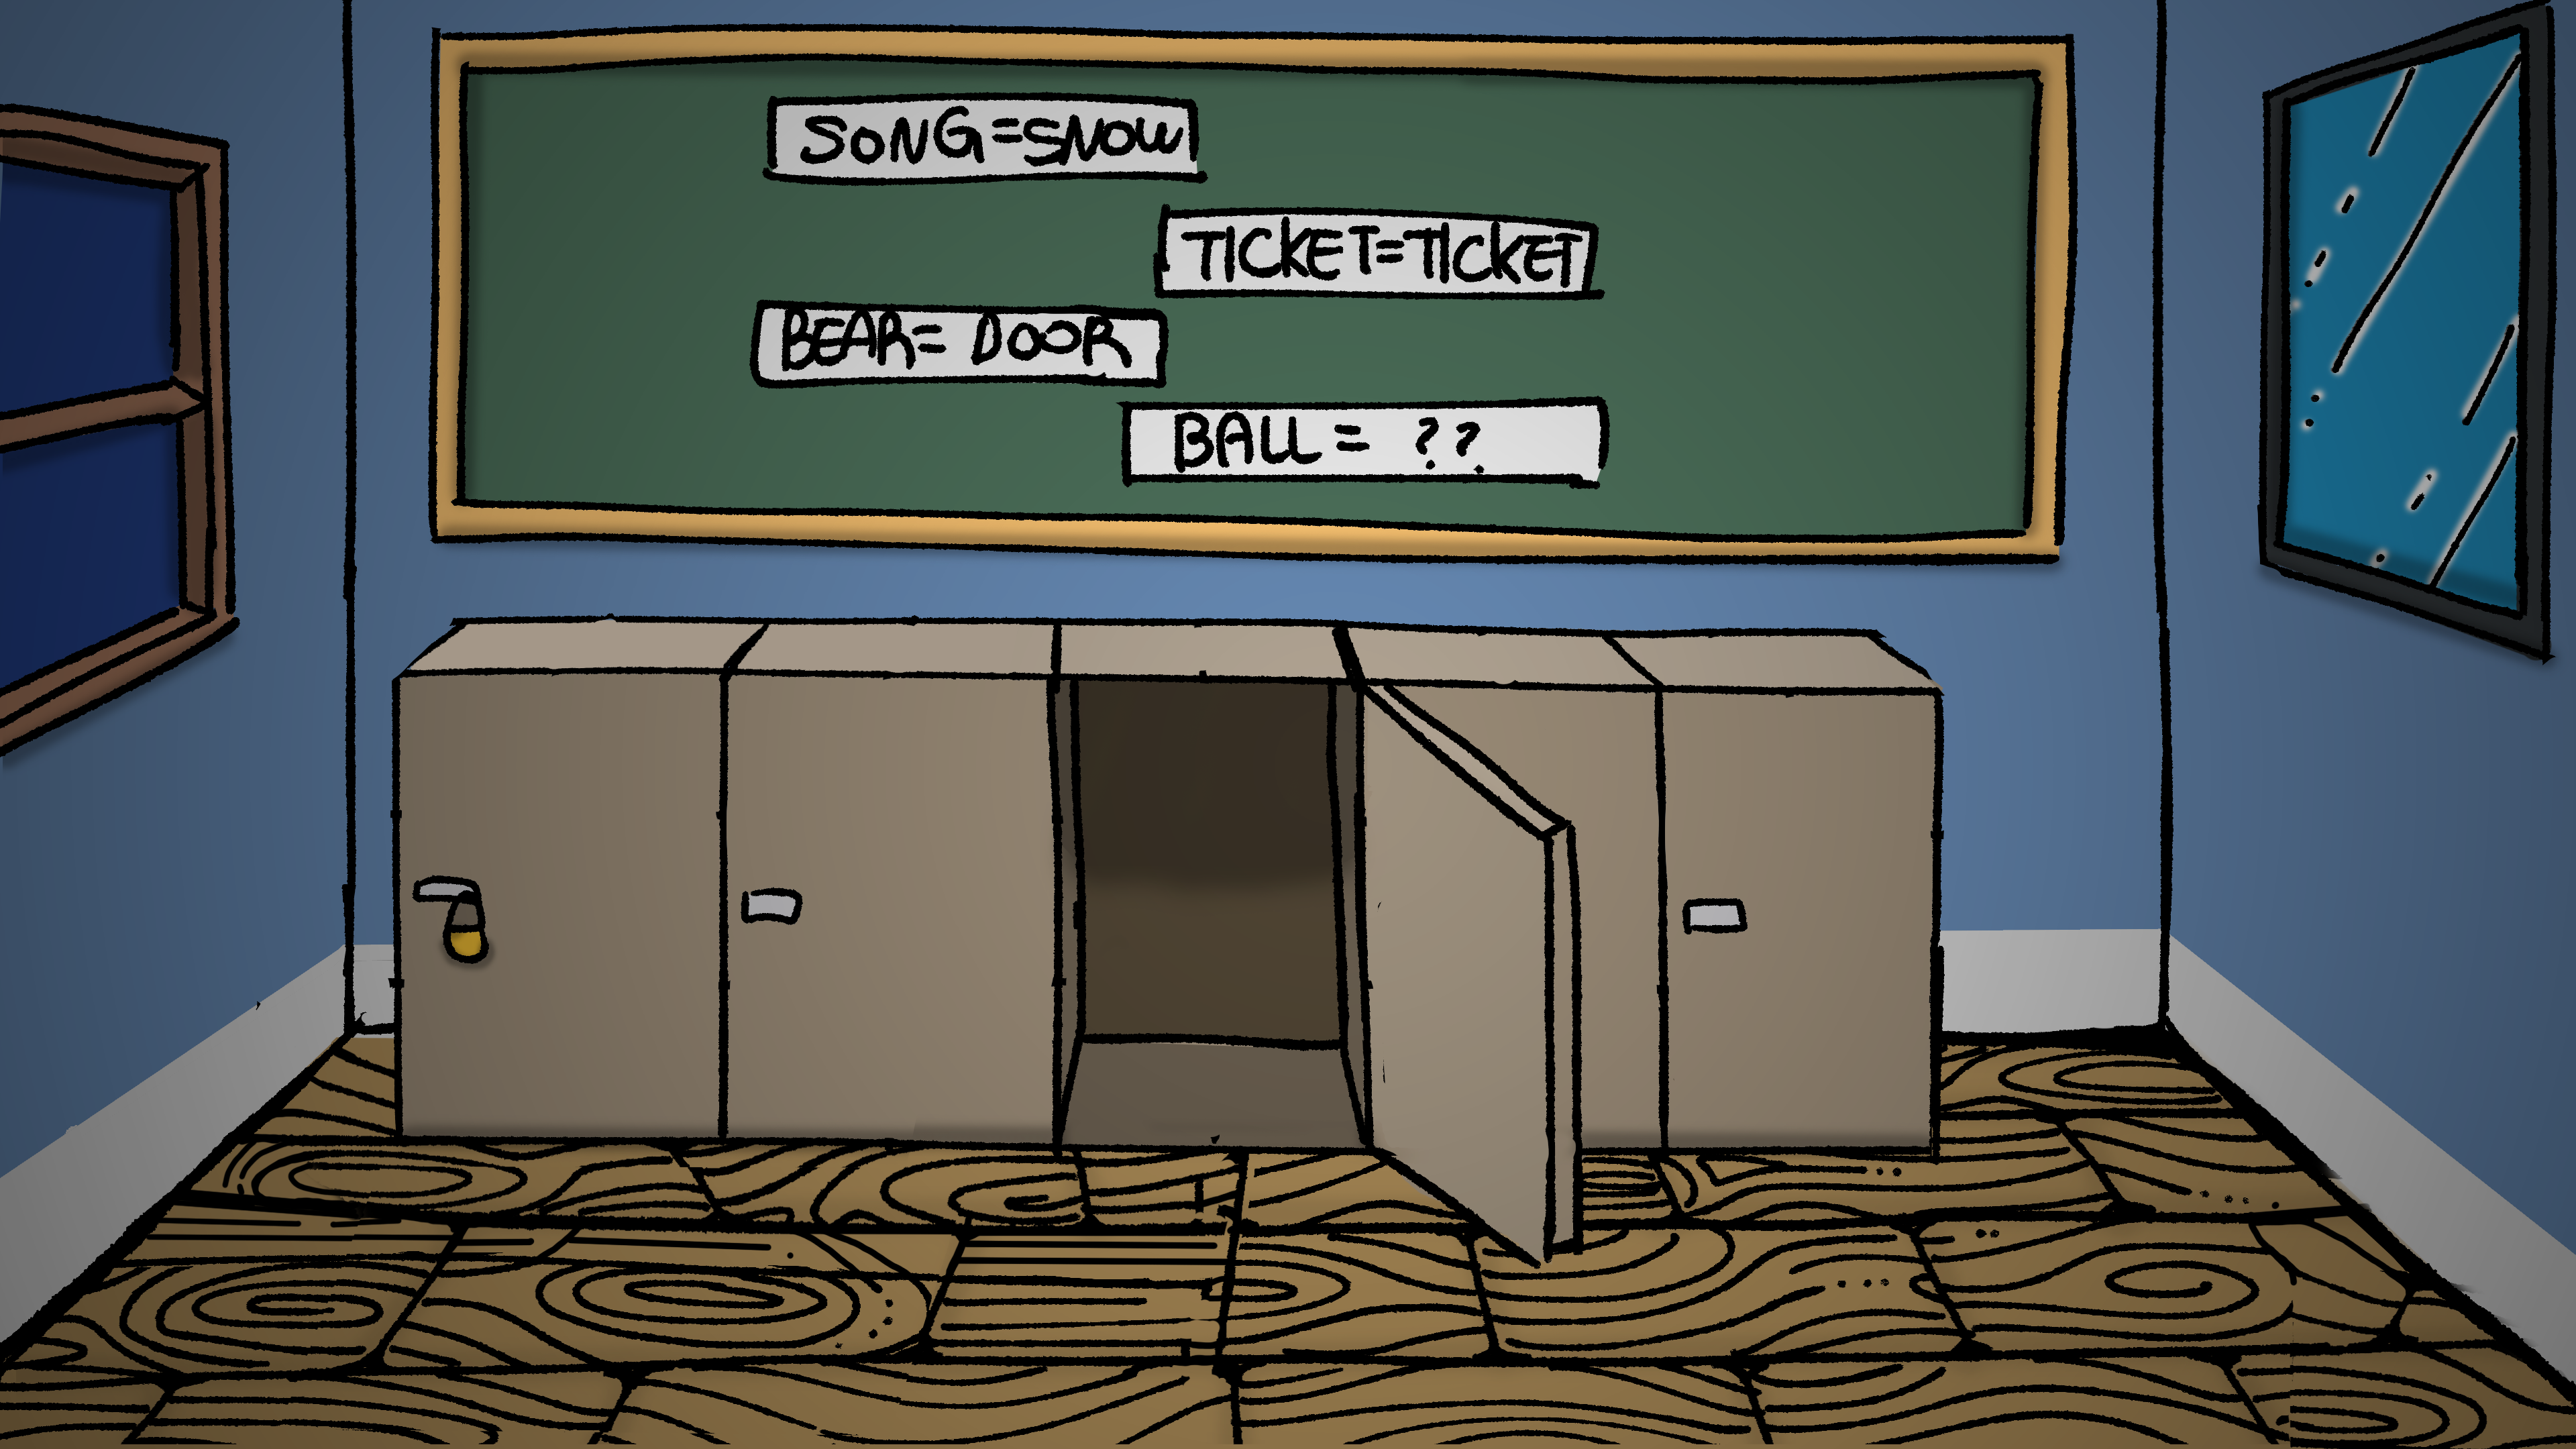 SONG=SNOW
TICKET=TICKET
BEAR= DOOR
BALL = ??